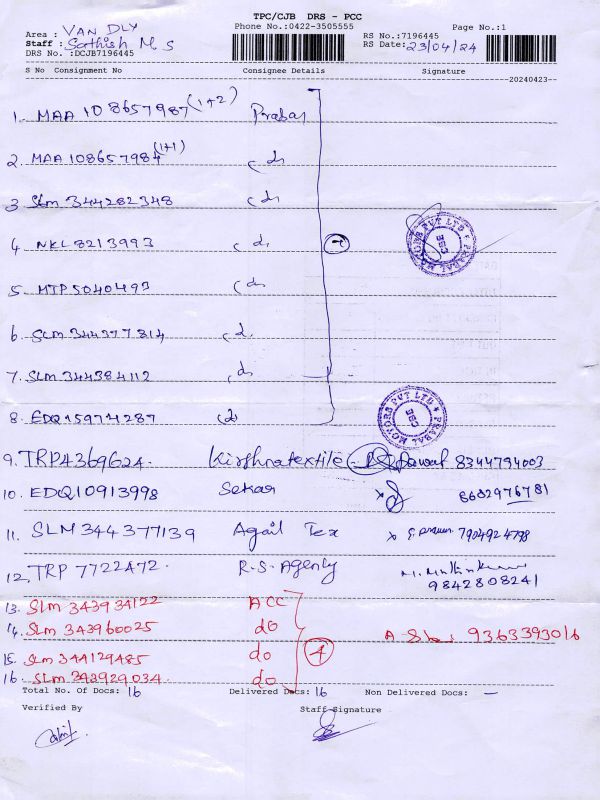 TPC/CJB DRS - PCC
Phone No.:0422-3505555
Page No.:1
Area : VAN DLY
RS No.:7196445
Staff : Sathish M.S
RS Date: 23/04/24
DRS No. :DCJB7196445
S No Consignment No Consignee Details Signature
20240423
1. MAA 108657987 (1+2) Prabal
2. MAA 108657984 (1+1) do
3 SLM 344282348 do
4 NKL 8213993 do
5 MTP 5040493 do
6 SLM 344377814 do
7. SLM 344384112 do
8. EDQ 159714287 do
PRABAL MOTORS PVT LTD
PRABAL MOTORS PVT LTD
9. TRP4369624. Kirshnatextile 8344794003
10. EDQ10913998 Sekar 8682976781
11. SLM 344377139 Agail Tex 7904924798
12. TRP 7722472. R.S. Agenty 9842808241
13. SLM 343934122 ACC
14. SLM 343960025 do 9363393016
15. SLM 344129485 do 4
16. SLM 343929034. do
Total No. Of Docs: 16 Delivered Docs: 16 Non Delivered Docs: —
Verified By Staff Signature